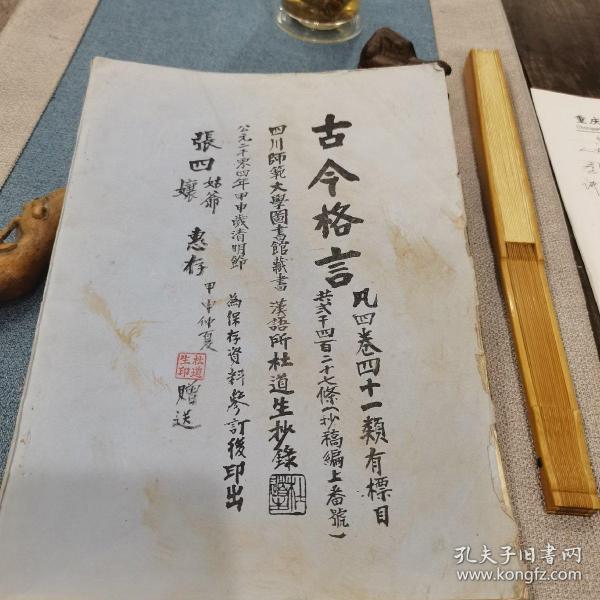 古今格言
凡四卷四十一類有標目
共弍千四百二十七條(抄稿編上番號)
四川師範大學圖書館藏書 漢語所杜道生抄錄
公元二千零四年甲申歲清明節 為保存資料參訂後印出
張四姑爺
孃 惠存
甲申仲夏
杜道生印
贈送
重庆
孔夫子旧书网
www.kongfz.com